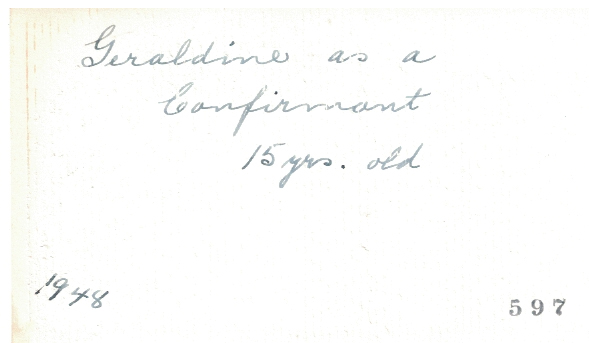 Geraldine as a
Confirmant
15 yrs. old
1948
597